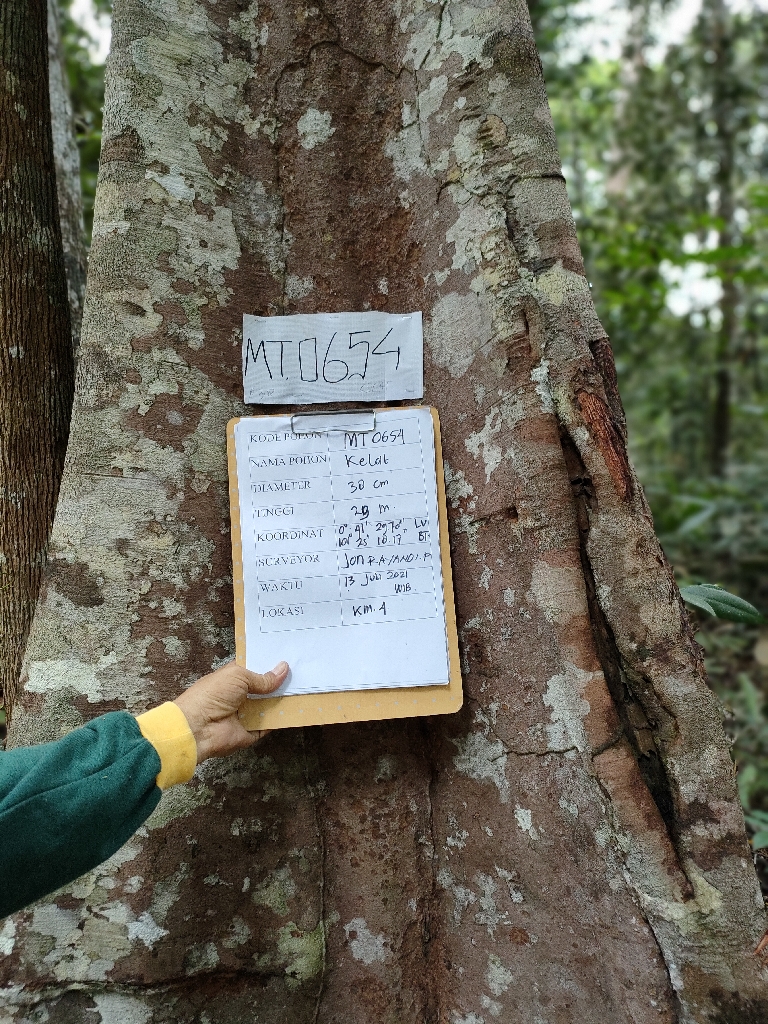 MT.0654
KODE POHON MT 0654
NAMA POHON Kelat
DIAMETER 30 cm
TINGGI 29 m.
KOORDINAT 0° 41' 29,70" LU
101° 25' 18,17" BT.
SURVEYOR Jon R.A/ANDI.P
WAKTU 13 Juli 2021
WIB
LOKASI KM. 4